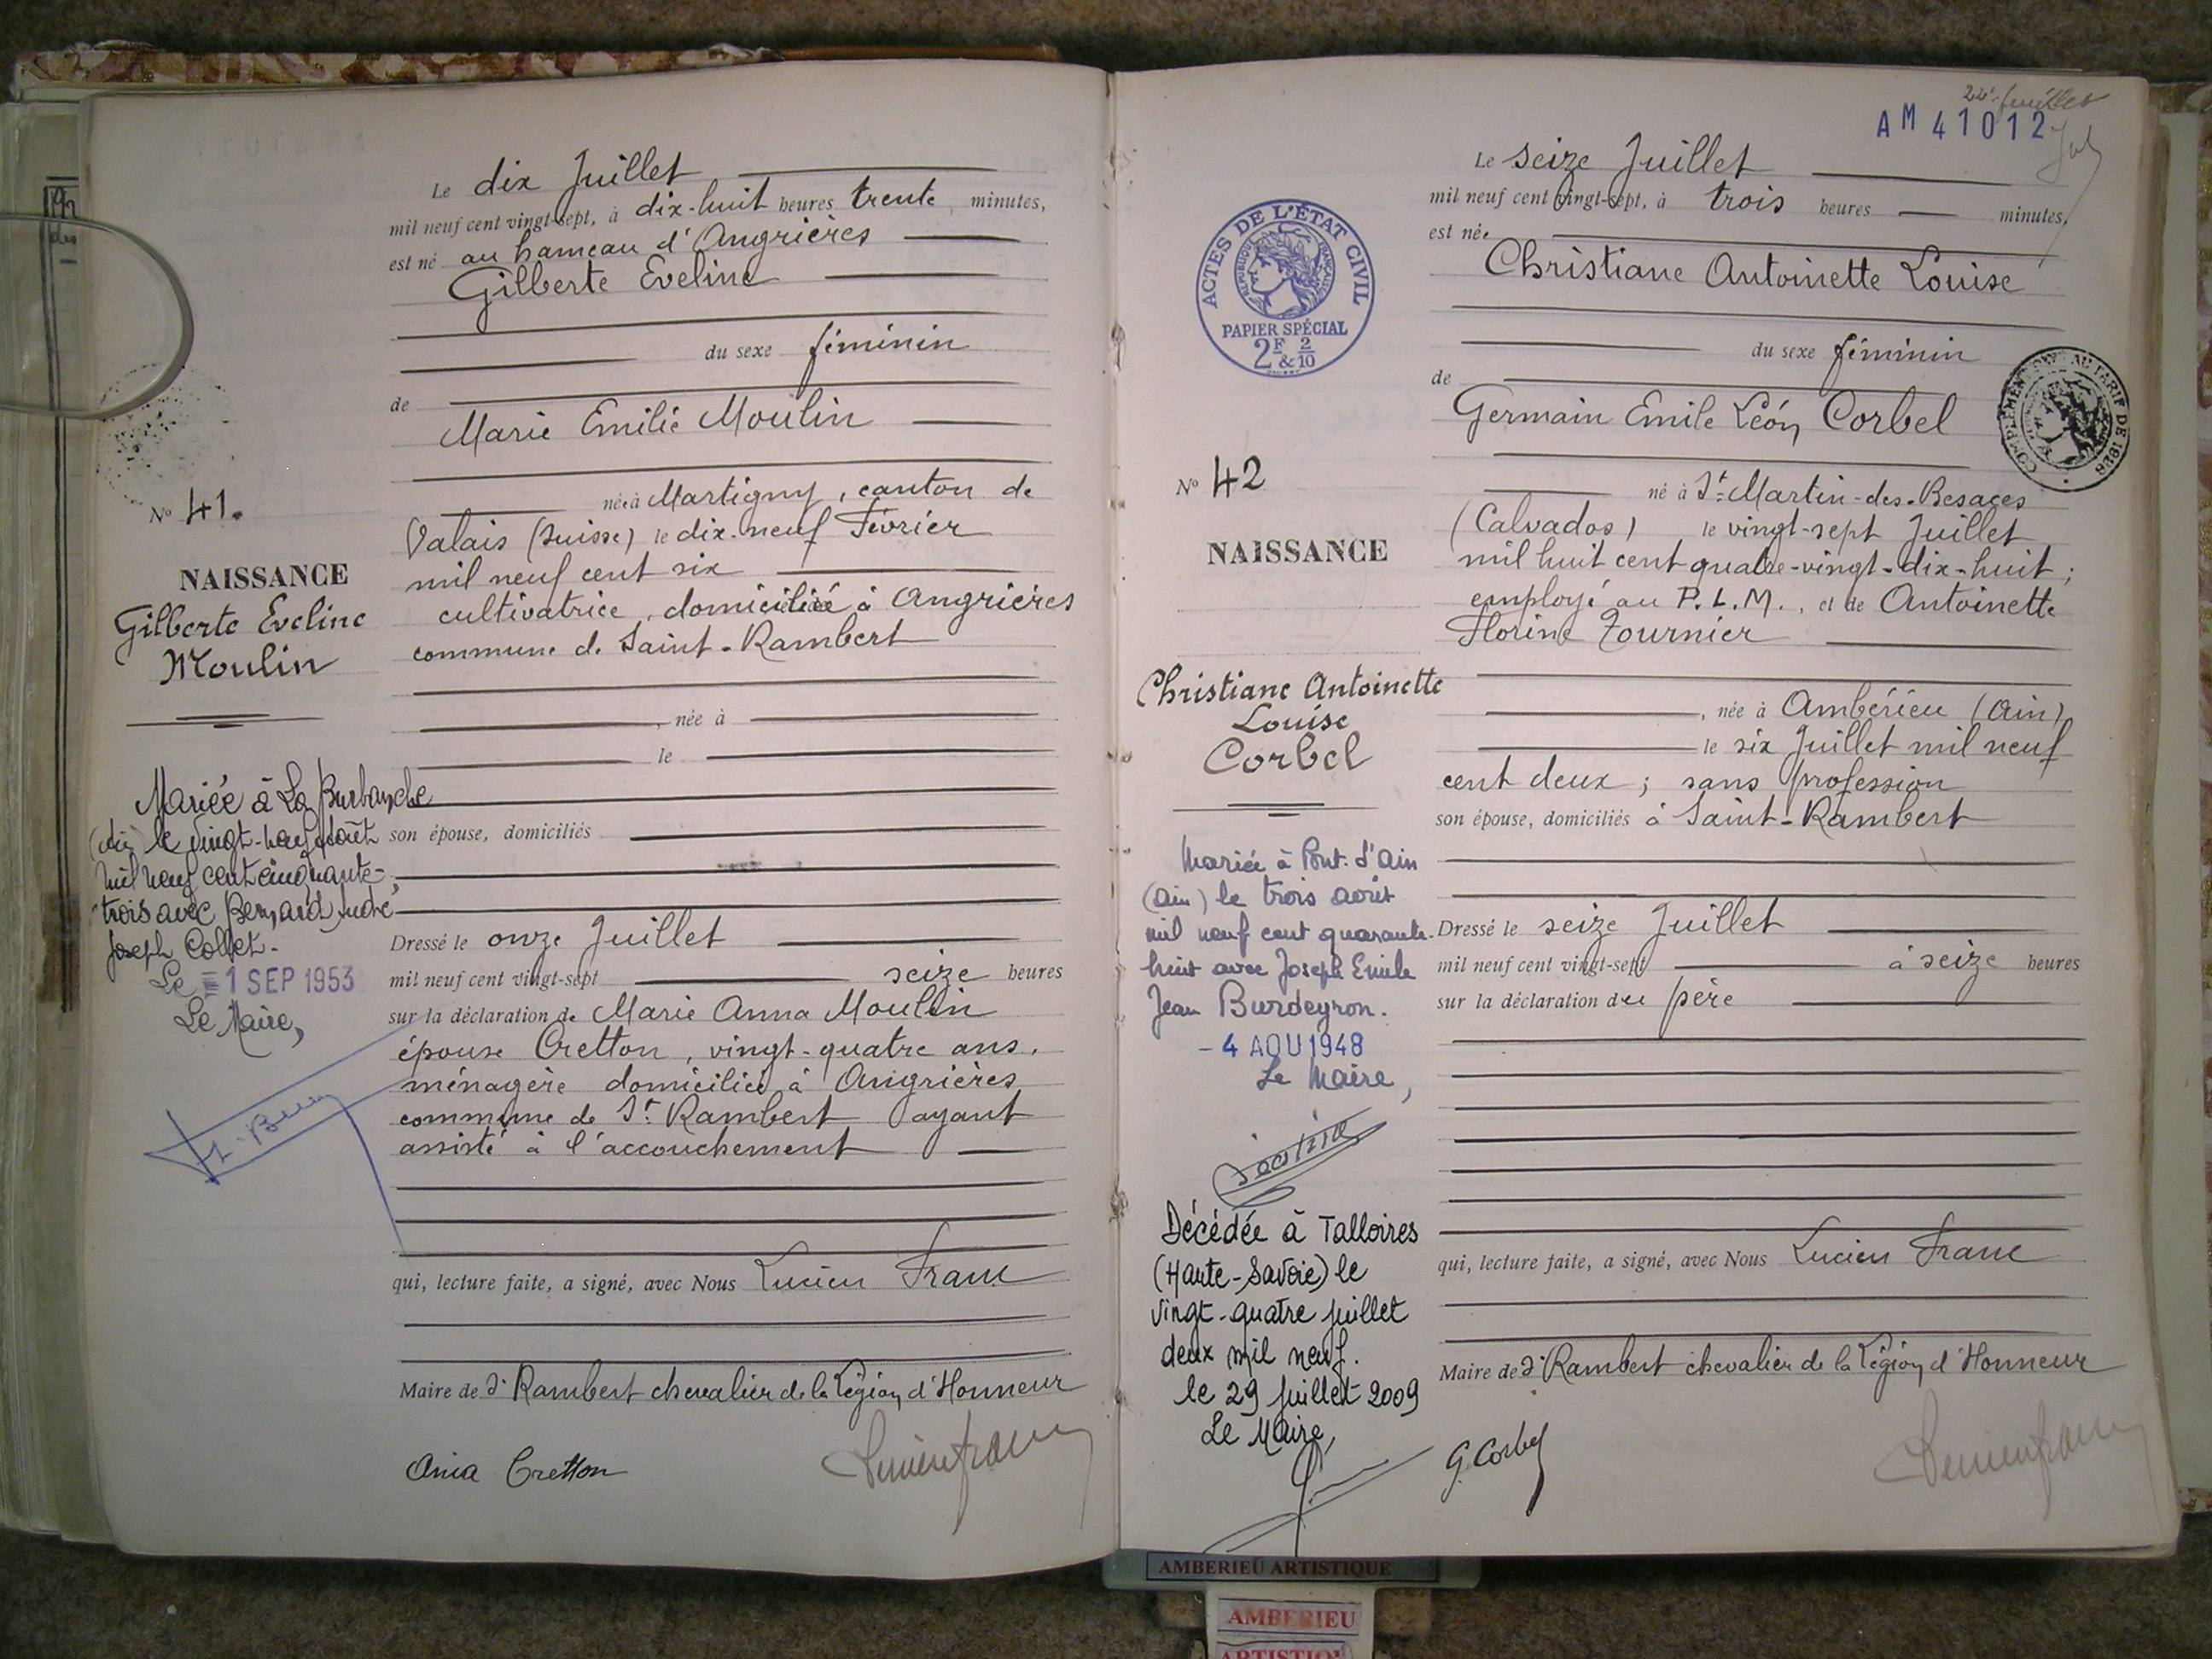 Le dix Juillet
mil neuf cent vingt-sept, à dix-huit heures trente minutes,
est né au hameau d'Angrières
Gilberte Eveline
du sexe féminin
de
Marie Emilie Moulin
née à Martigny, canton de
Valais (Suisse) le dix-neuf Février
mil neuf cent six
cultivatrice, domiciliée à Angrières
commune de Saint-Rambert
, née à
le
son épouse, domiciliés
Dressé le onze Juillet
mil neuf cent vingt-sept seize heures
sur la déclaration de Marie Anna Moulin
épouse Cretton, vingt-quatre ans,
ménagère domiciliée à Angrières
commune de St Rambert ayant
assisté à l'accouchement
qui, lecture faite, a signé, avec Nous Lucien Franc
Maire de St Rambert chevalier de la Légion d'Honneur
Cretton
No 41.
NAISSANCE
Gilberte Eveline
Moulin
Mariée à La Burbanche
(Ain) le vingt-neuf août
mil neuf cent cinquante-
trois avec Bernard
Joseph Collet.
Le 1 SEP 1953
Le Maire,
22e feuillet
AM 41012
Le seize Juillet
mil neuf cent vingt-sept, à trois heures minutes,
est née
Christiane Antoinette Louise
du sexe féminin
de
Germain Emile Léon Corbel
né à St Martin-des-Besaces
(Calvados) le vingt-sept Juillet
mil huit cent quatre-vingt-dix-huit;
employé au P.L.M., et de Antoinette
Florine Tournier
, née à Ambérieu (Ain)
le six Juillet mil neuf
cent deux; sans profession
son épouse, domiciliés à Saint-Rambert
Dressé le seize Juillet
mil neuf cent vingt-sept à seize heures
sur la déclaration du père
qui, lecture faite, a signé, avec Nous Lucien Franc
Maire de St Rambert chevalier de la Légion d'Honneur
G. Corbel
ACTES DE L'ÉTAT CIVIL
RÉPUBLIQUE FRANÇAISE
PAPIER SPÉCIAL
2F & 2/10
COMPLÉMENT AU TARIF DE 1926
No 42
NAISSANCE
Christiane Antoinette
Louise
Corbel
Mariée à Pont-d'Ain
(Ain) le trois août
mil neuf cent quarante-
huit avec Joseph Emile
Jean Burdeyron.
- 4 AOU 1948
Le Maire,
Décédée à Talloires
(Haute-Savoie) le
vingt-quatre juillet
deux mil neuf.
le 29 juillet 2009
Le Maire,
AMBERIEU ARTISTIQUE
AMBERIEU
ARTISTIQUE